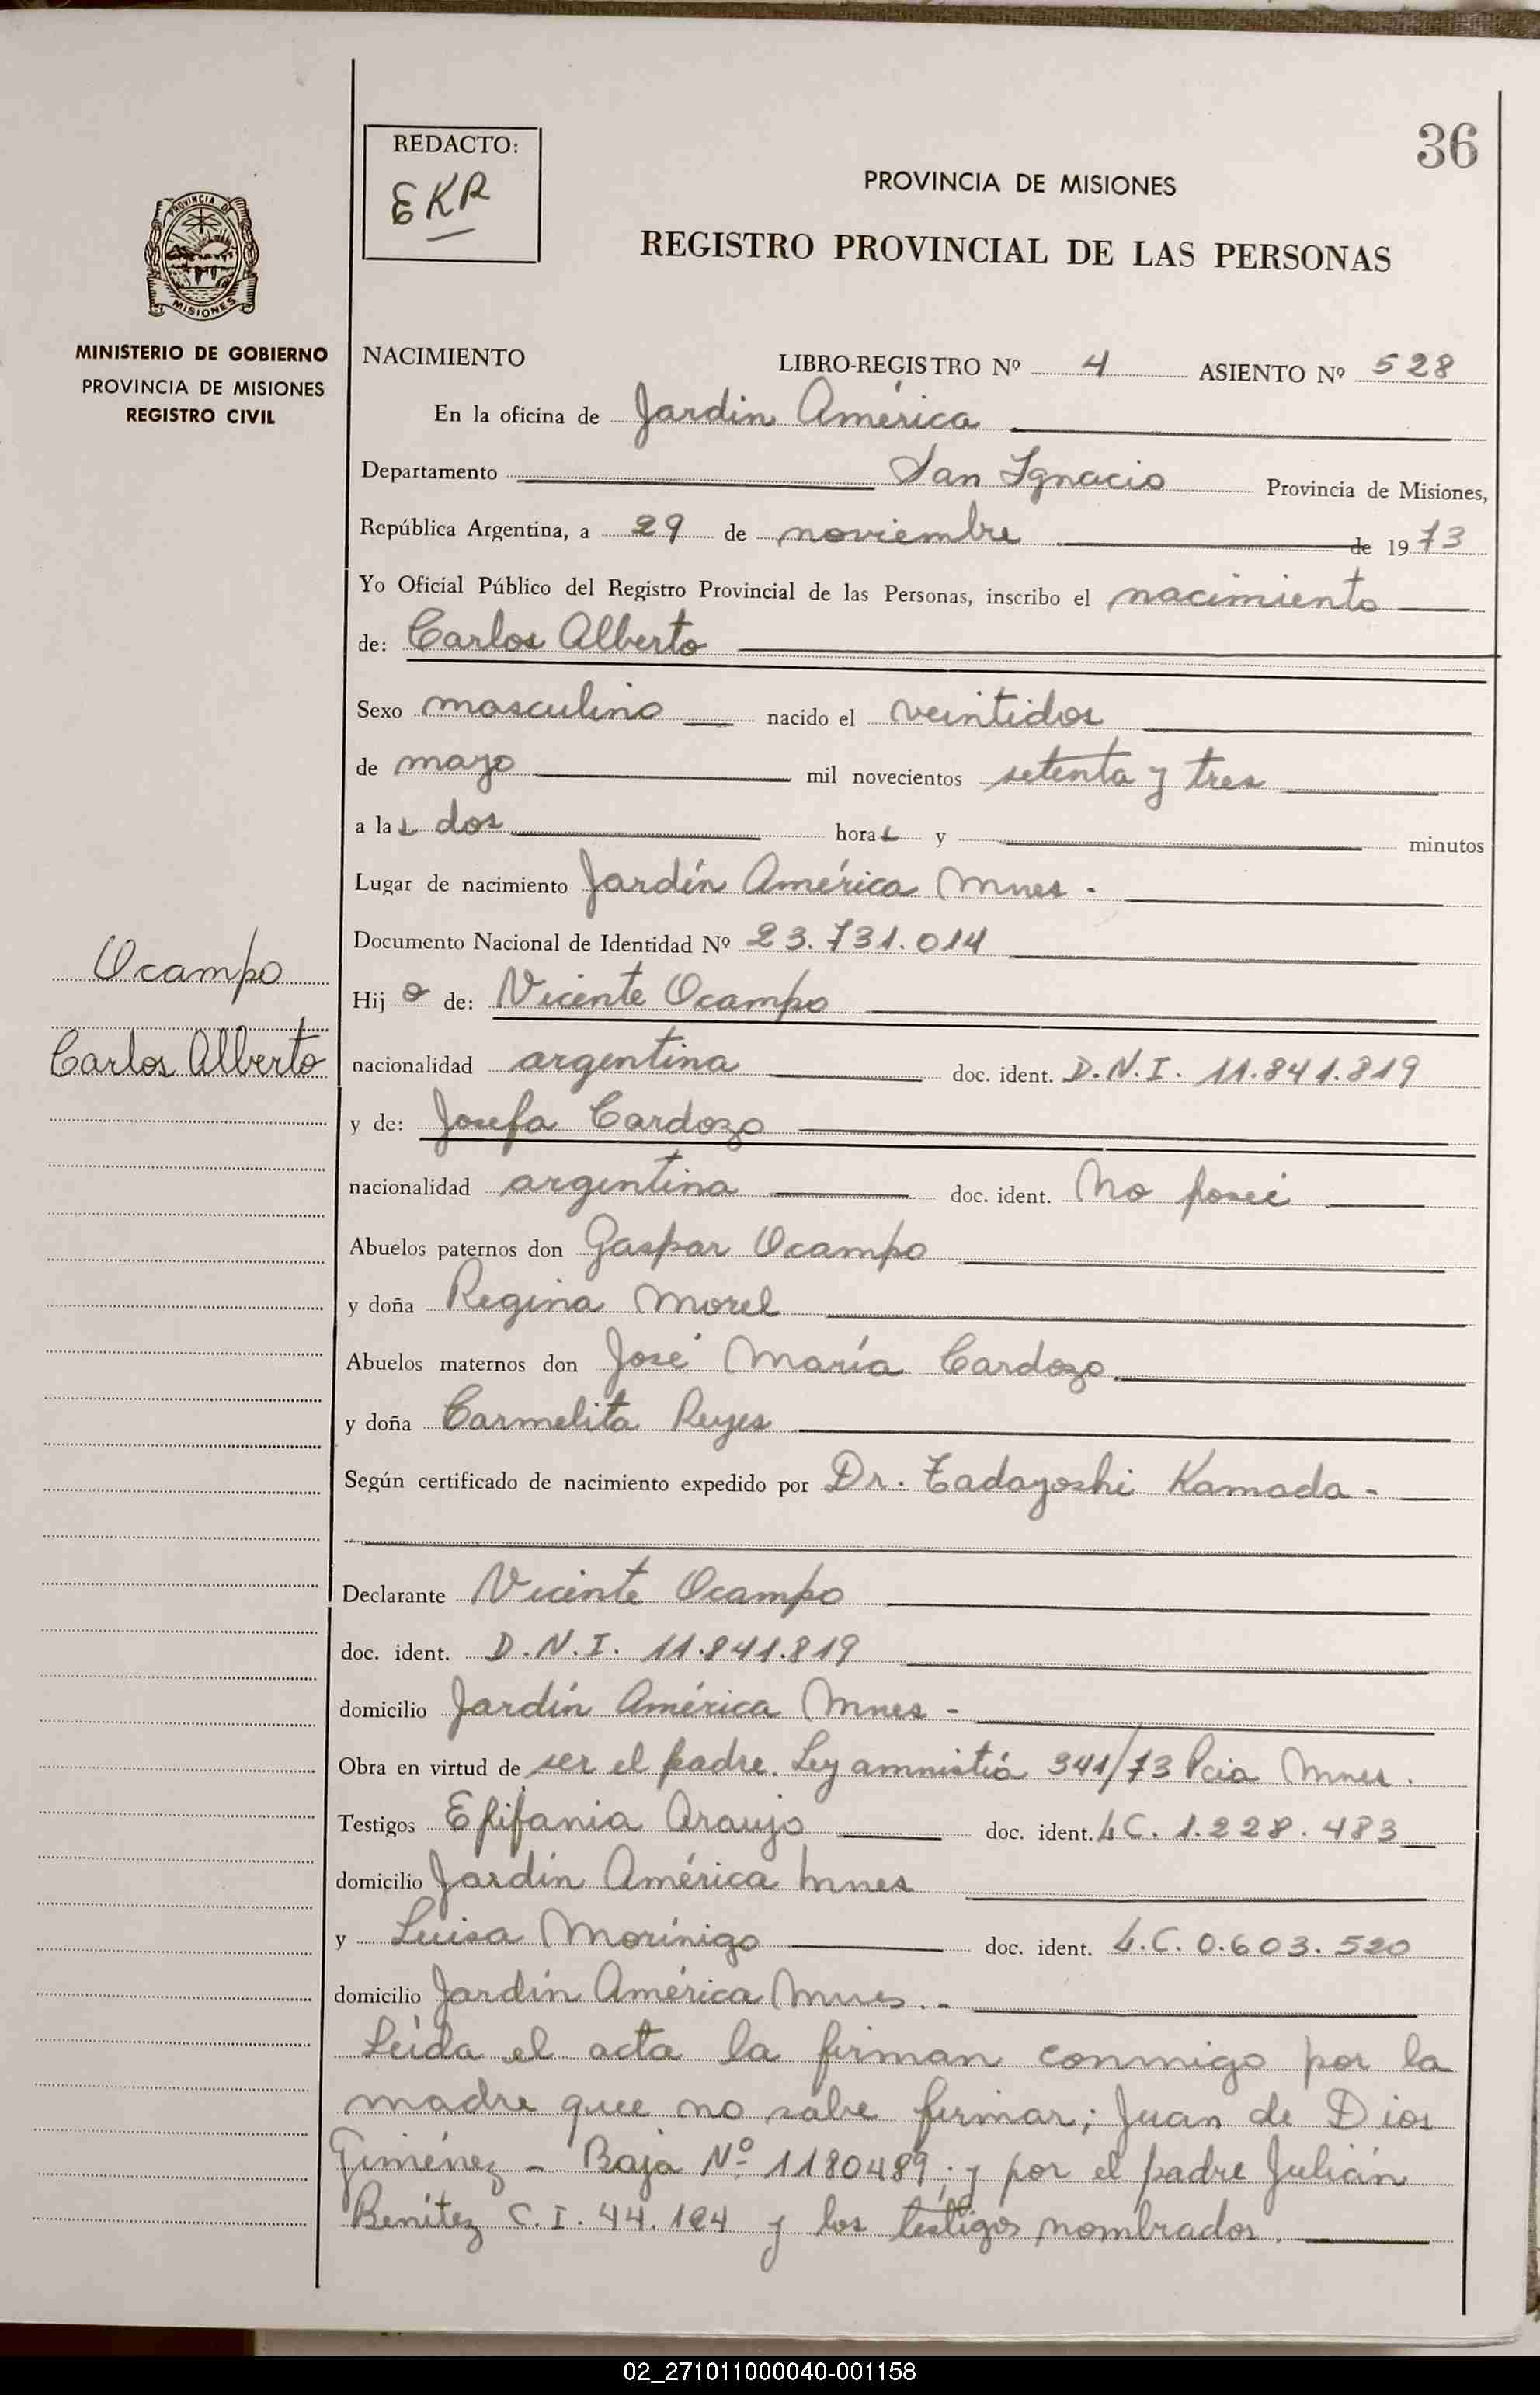 36
REDACTO:
EKR
PROVINCIA DE MISIONES
REGISTRO PROVINCIAL DE LAS PERSONAS
PROVINCIA DE
MISIONES
MINISTERIO DE GOBIERNO
PROVINCIA DE MISIONES
REGISTRO CIVIL
NACIMIENTO LIBRO-REGISTRO Nº 4 ASIENTO Nº 528
En la oficina de Jardin América
Departamento San Ignacio Provincia de Misiones,
República Argentina, a 29 de noviembre de 1973
Yo Oficial Público del Registro Provincial de las Personas, inscribo el nacimiento
de: Carlos Alberto
Sexo masculino nacido el veintidos
de mayo mil novecientos setenta y tres
a las dos horas y minutos
Lugar de nacimiento Jardín América Mnes.
Documento Nacional de Identidad Nº 23.731.014
Ocampo
Hijo de: Vicente Ocampo
Carlos Alberto
nacionalidad argentina doc. ident. D.N.I. 11.841.819
y de: Josefa Cardozo
nacionalidad argentina doc. ident. No posee
Abuelos paternos don Gaspar Ocampo
y doña Regina Morel
Abuelos maternos don José María Cardozo
y doña Carmelita Reyes
Según certificado de nacimiento expedido por Dr. Tadayoshi Kamada -
Declarante Vicente Ocampo
doc. ident. D.N.I. 11.841.819
domicilio Jardín América Mnes -
Obra en virtud de ser el padre. Ley amnistía 341/73 Pcia Mnes.
Testigos Epifania Araujo doc. ident. L.C. 1.228.483
domicilio Jardín América Mnes
y Luisa Morínigo doc. ident. L.C. 0.603.520
domicilio Jardín América Mnes..
Leída el acta la firman conmigo por la
madre que no sabe firmar; Juan de Dios
Giménez - Baja Nº 1180489; y por el padre Julián
Benítez C.I. 44.184 y los testigos nombrados.
02_271011000040-001158